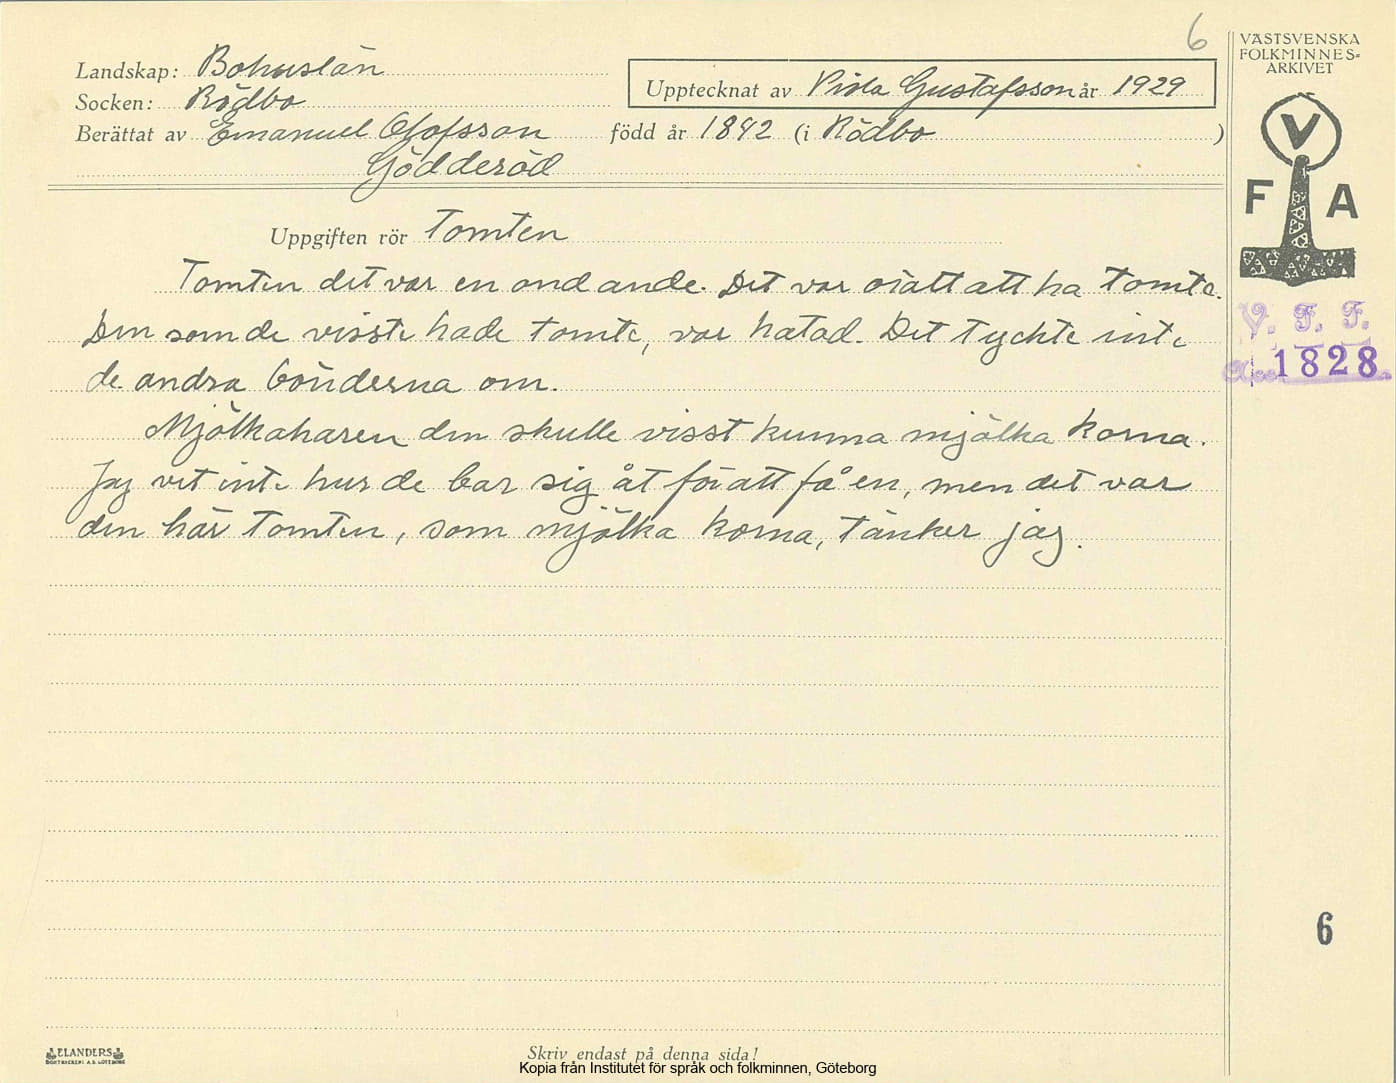 6
VÄSTSVENSKA
FOLKMINNES=
ARKIVET
Landskap: Bohuslän
Upptecknat av Viola Gustafsson år 1929
Socken: Rödbo
Berättat av Emanuel Olofsson född år 1842 (i Rödbo )
Gödderöd
V
F A
Uppgiften rör Tomten
Tomten det var en ond ande. Det var orätt att ha tomte.
Den som de visste hade tomte, var hatad. Det tyckte inte
de andra bönderna om.
V. F. F.
Acc. 1828
Mjölkaharen den skulle visst kunna mjölka korna.
Jag vet inte hur de bar sig åt för att få en, men det var
den här tomten, som mjölka korna, tänker jag.
6
ELANDERS
BOKTRYCKERI A.B. GÖTEBORG
Skriv endast på denna sida!
Kopia från Institutet för språk och folkminnen, Göteborg